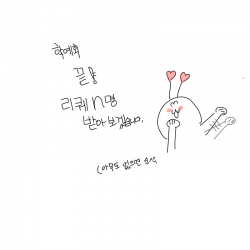 학예회
끝난
리퀘 n명
받아보겠습니다.
(아무도 없으면 먼삭